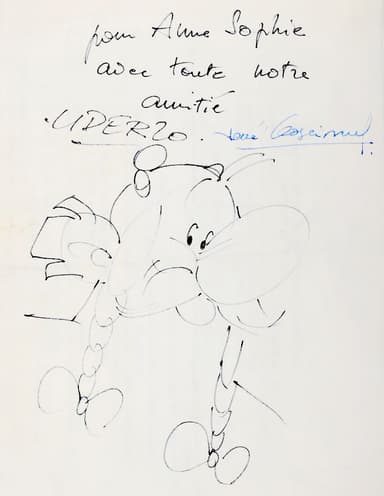 pour Anne Sophie
avec toute notre
amitié
.UDERZO. René Goscinny